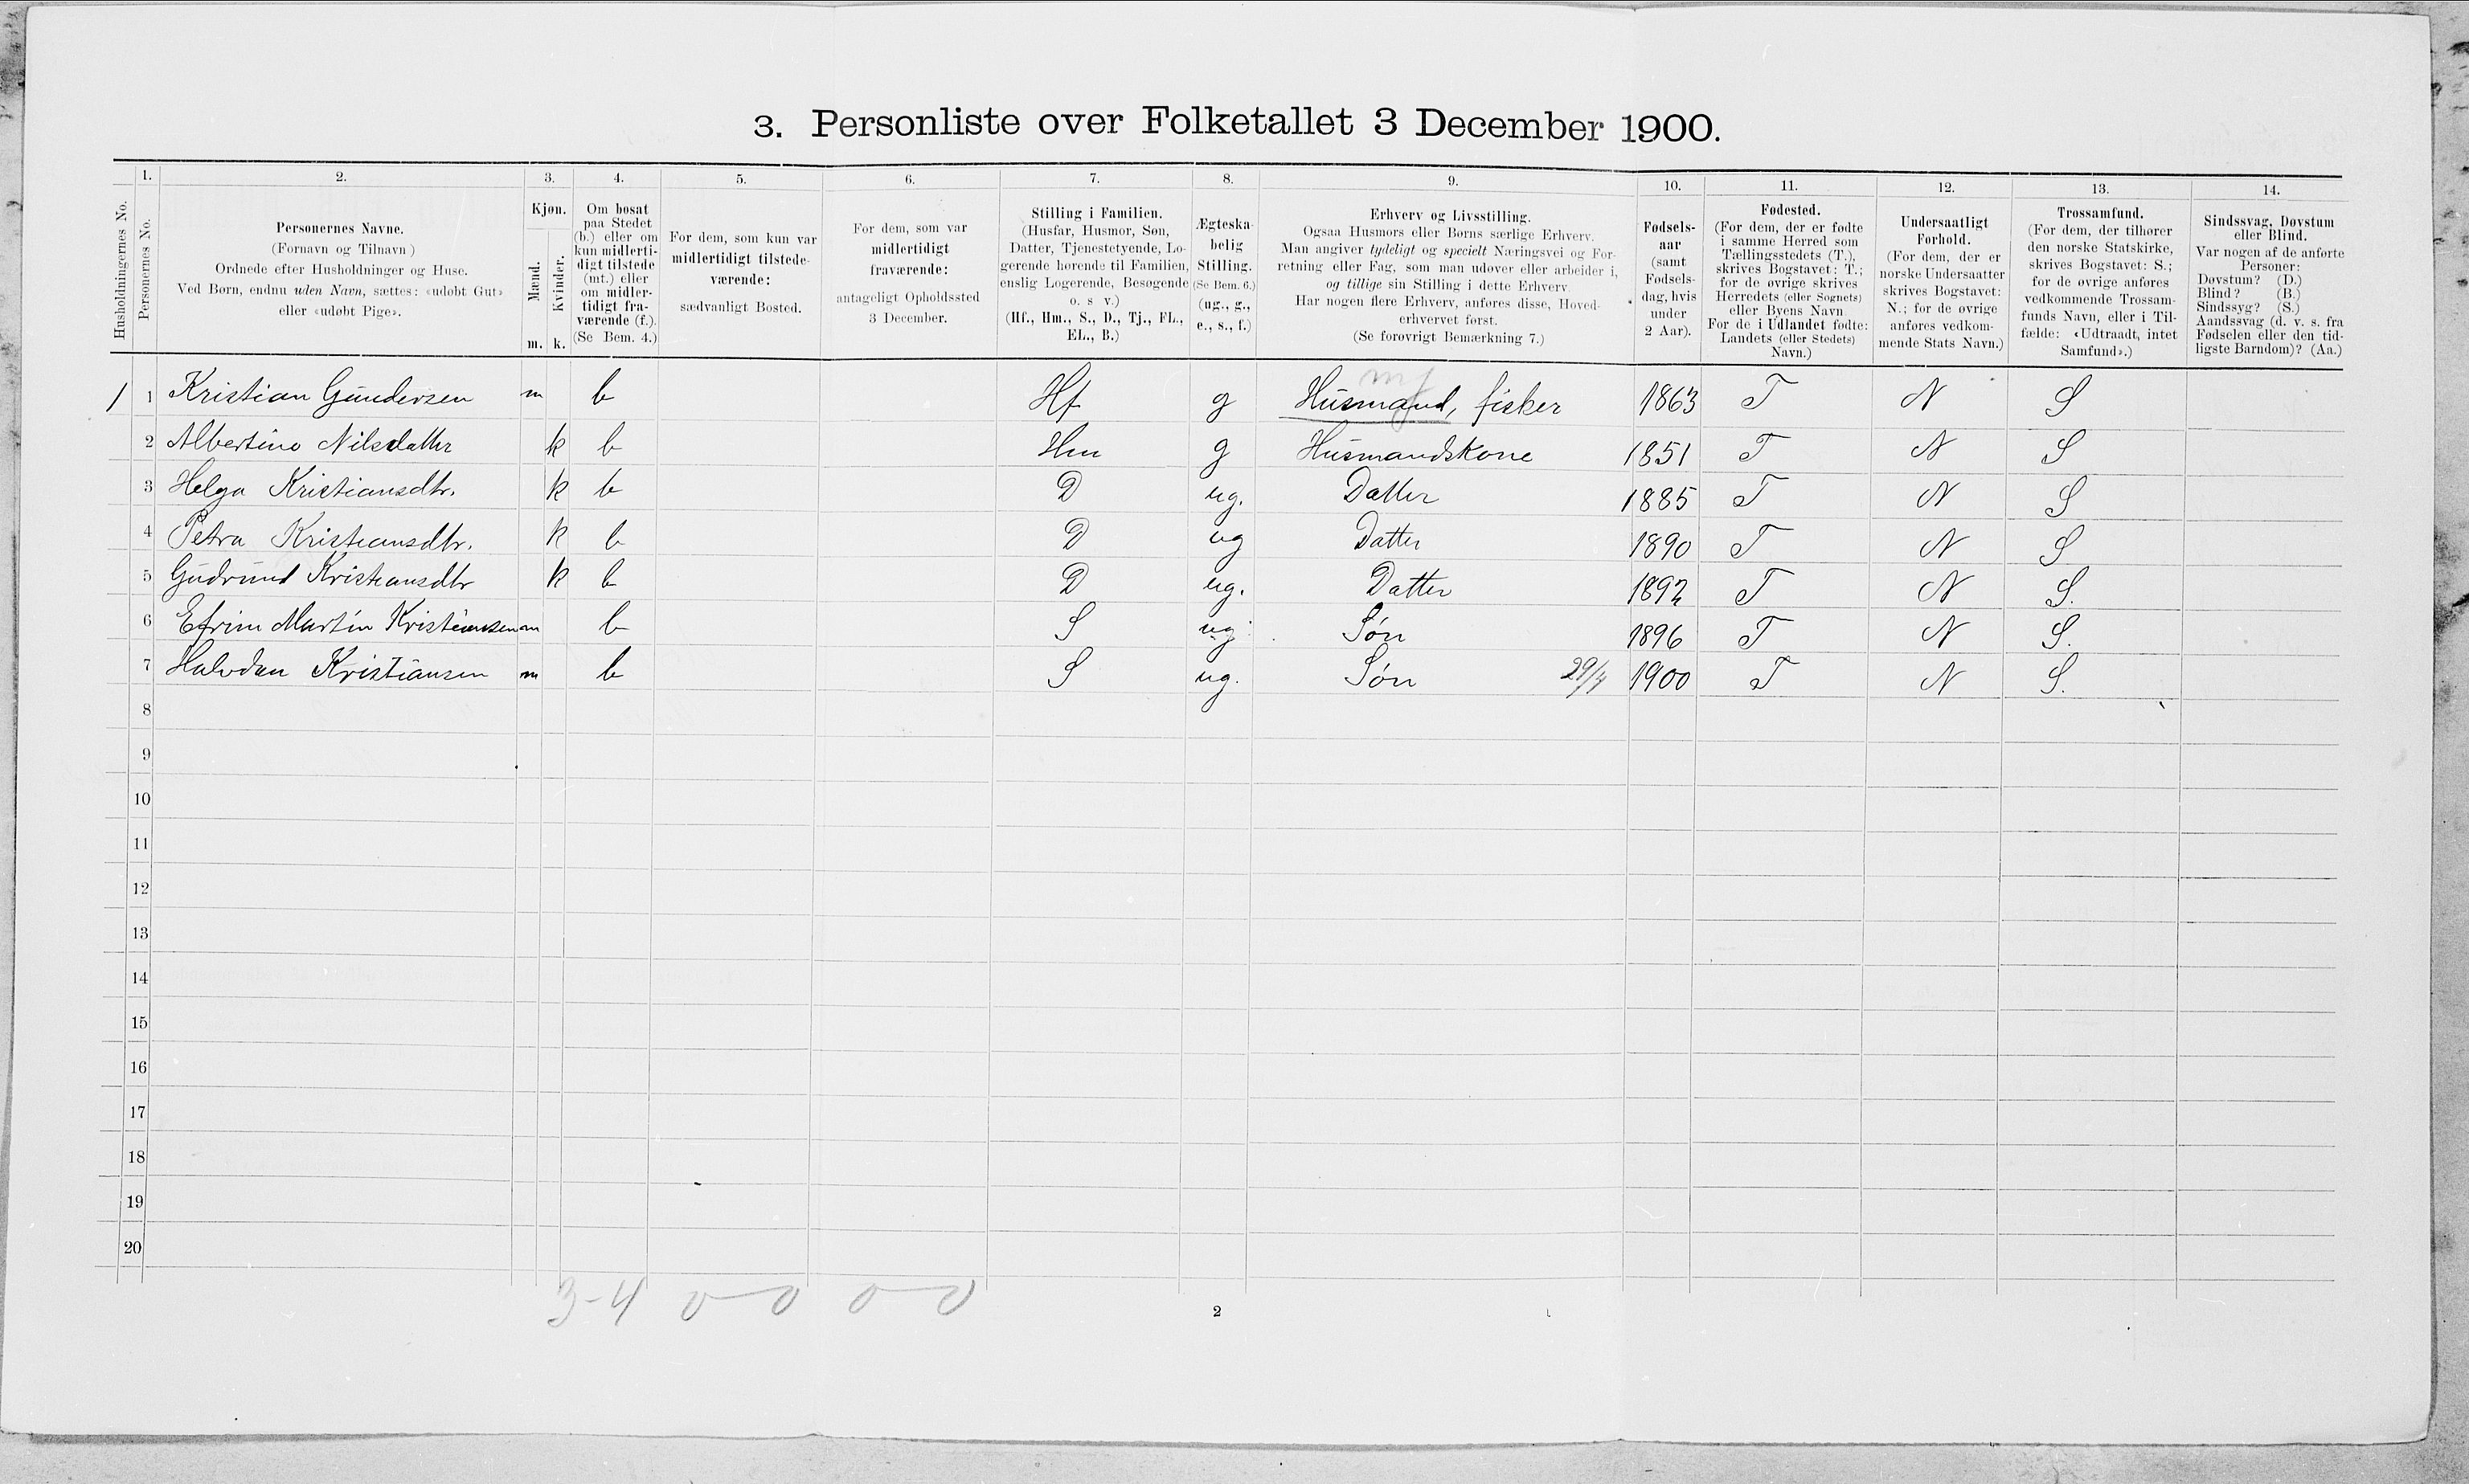 3. Personliste over Folketallet 3 December 1900.
1. 2. 3. 4. 5. 6. 7. 8. 9. 10. 11. 12. 13. 14.
Husholdningernes No.
Personernes No.
Personernes Navne.
(Fornavn og Tilnavn)
Ordnede efter Husholdninger og Huse.
Ved Børn, endnu uden Navn, sættes: «udøbt Gut»
eller «udøbt Pige».
Kjøn.
Mænd.
Kvinder.
m. k.
Om bosat
paa Stedet
(b.) eller om
kun midlerti-
digt tilstede
(mt.) eller
om midler-
tidigt fra-
værende (f.).
(Se Bem. 4.)
For dem, som kun var
midlertidigt tilstede-
værende:
sædvanligt Bosted.
For dem, som var
midlertidigt
fraværende:
antageligt Opholdssted
3 December.
Stilling i Familien.
(Husfar, Husmor, Søn,
Datter, Tjenestetyende, Lo-
gerende hørende til Familien,
enslig Logerende, Besøgende
o. s v.)
(Hf., Hm., S., D., Tj., FL.,
EL., B.)
Ægteska-
belig
Stilling.
(Se Bem. 6.)
(ug., g.,
e., s., f.)
Erhverv og Livsstilling.
Ogsaa Husmors eller Børns særlige Erhverv.
Man angiver tydeligt og specielt Næringsvei og For-
retning eller Fag, som man udøver eller arbeider i,
og tillige sin Stilling i dette Erhverv.
Har nogen flere Erhverv, anføres disse, Hoved-
erhvervet først.
(Se forøvrigt Bemærkning 7.)
Fødsels-
aar
(samt
Fødsels-
dag, hvis
under
2 Aar).
Fødested.
(For dem, der er fødte
i samme Herred som
Tællingsstedets (T.),
skrives Bogstavet: T.;
for de øvrige skrives
Herredets (eller Sognets)
eller Byens Navn
For de i Udlandet fødte:
Landets (eller Stedets)
Navn.)
Undersaatligt
Forhold.
(For dem, der er
norske Undersaatter
skrives Bogstavet:
N.; for de øvrige
anføres vedkom-
mende Stats Navn.)
Trossamfund.
(For dem, der tilhører
den norske Statskirke,
skrives Bogstavet: S.;
for de øvrige anføres
vedkommende Trossam-
funds Navn, eller i Til-
fælde: «Udtraadt, intet
Samfund».)
Sindssvag, Døvstum
eller Blind.
Var nogen af de anførte
Personer:
Døvstum? (D.)
Blind? (B.)
Sindssyg? (S.)
Aandssvag (d. v. s. fra
Fødselen eller den tid-
ligste Barndom)? (Aa.)
1 1 Kristian Gundersen m b Hf g Husmand, fisker 1863 T N S
2 Albertine Nilsdatter k b Hm g Husmandskone 1851 T N S
3 Helga Kristiansdtr. k b D ug. Datter 1885 T N S
4 Petra Kristiansdtr. k b D ug Datter 1890 T N S
5 Gudrund Kristiansdtr k b D ug. Datter 1892 T N S.
6 Efrim Martin Kristiansen m b S ug Søn 1896 T N S.
7 Halvdan Kristiansen m b S ug. Søn 29/4 1900 T N S.
8
9
10
11
12
13
14
15
16
17
18
19
20
3-4 0-0 0-0
2